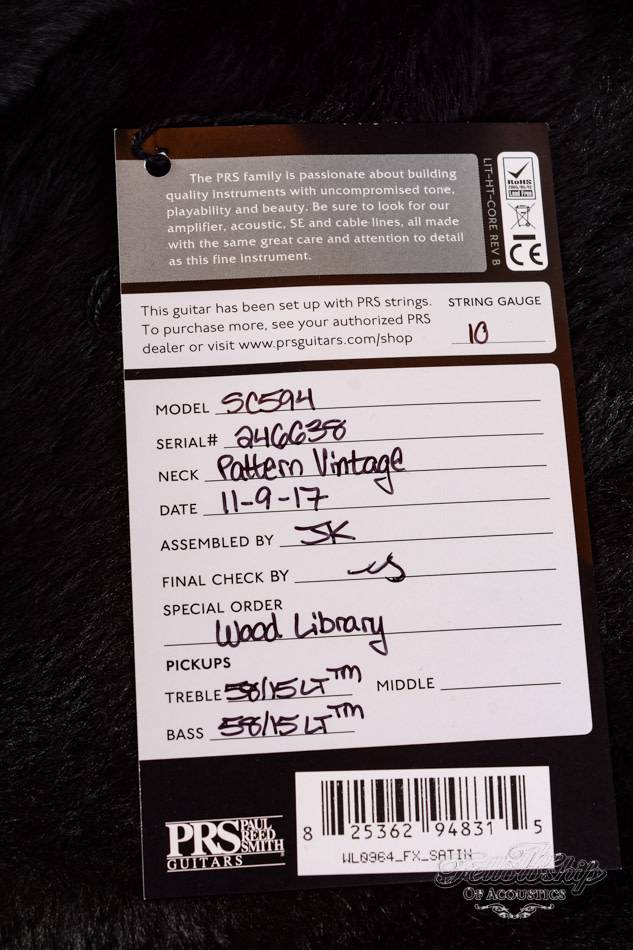 The PRS family is passionate about building
quality instruments with uncompromised tone,
playability and beauty. Be sure to look for our
amplifier, acoustic, SE and cable lines, all made
with the same great care and attention to detail
as this fine instrument.
LIT-HT-CORE REV B
RoHS
2002/95/EC
Lead Free
CE
This guitar has been set up with PRS strings.
To purchase more, see your authorized PRS
dealer or visit www.prsguitars.com/shop
STRING GAUGE
10
MODEL SC594
SERIAL# 246638
NECK Pattern Vintage
DATE 11-9-17
ASSEMBLED BY JK
FINAL CHECK BY
SPECIAL ORDER
Wood Library
PICKUPS
TREBLE 58/15 LT™ MIDDLE
BASS 58/15 LT™
PRS PAUL REED SMITH
GUITARS
8 25362 94831 5
WL0964_FX_SATIN
Fellowship
OF ACOUSTICS